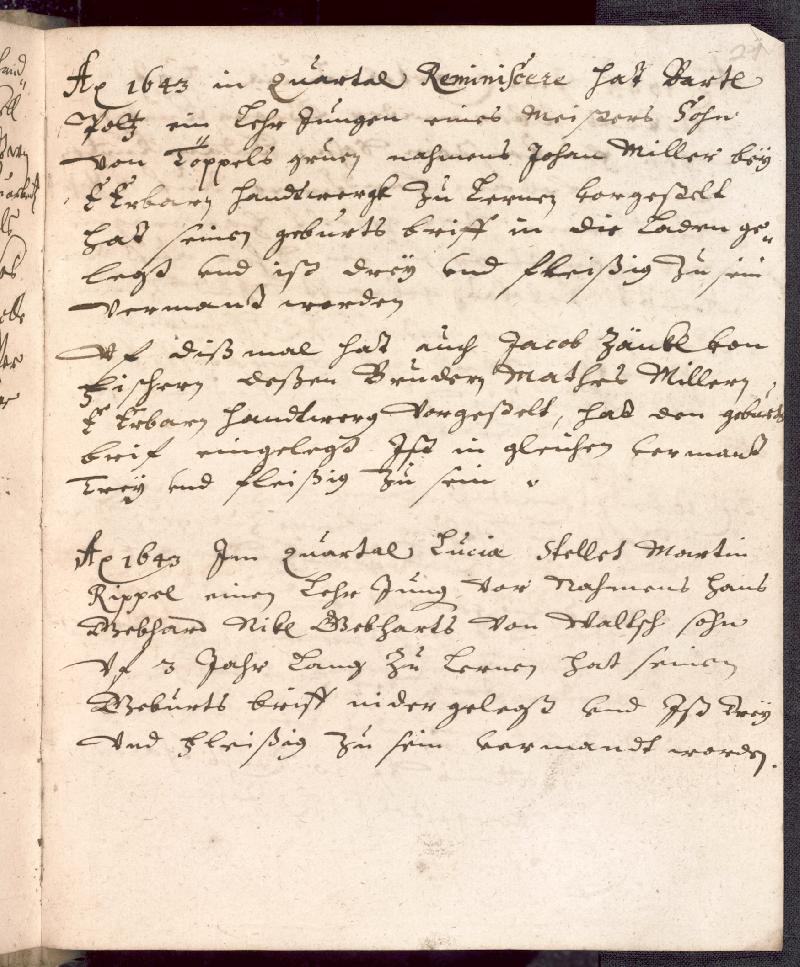 Ao 1643 in Quartal Reminiscere hat Bartl
Poltz ein Lehr Jungen eines Meisters Sohn
von Töppels gruen nahmens Johan Miller beÿ
E Erbarn handtwergk zu Lernen vorgestelt
hat seinen geburts briff in die Laden ge„
legt vnd ist dreÿ vnd fleißig zu sein
vermant worden
Vf dißmal hat auch Jacob Zänkl von
fischern deßen Brudern Mathes Millern,
E Erbarn handtwerg vorgestelt, hat den geburts
brif eingelegt Ist in gleichen vermant
Treÿ vnd fleißig zu sein
Ao 1643 Im Quartal Luciæ Stellet Martin
Rippel einen Lehr Jung vor Nahmens Hans
Gebhard Nikl Gebharts von Waltsch sohn
Vf 3 Jahr Lang zu Lernen hat seinen
Geburts briff nider gelegt vnd Ist treÿ
Vnd fleißig zu sein vermandt worden.